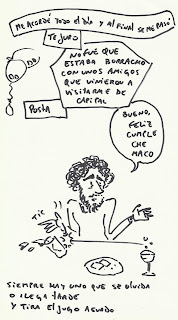 ME ACORDÉ TODO EL DÍA Y AL FINAL SE ME PASÓ
TE JURO
NO FUÉ QUE
ESTABA BORRACHO
CON UNOS AMIGOS
QUE VINIERON A
VISITARME DE
CAPITAL
POSTA
BUENO,
FELIZ
CUMPLE
CHE
MACO
TIC
SIEMPRE HAY UNO QUE SE OLVIDA
O LLEGA TARDE
Y TIRA EL JUGO AGUADO